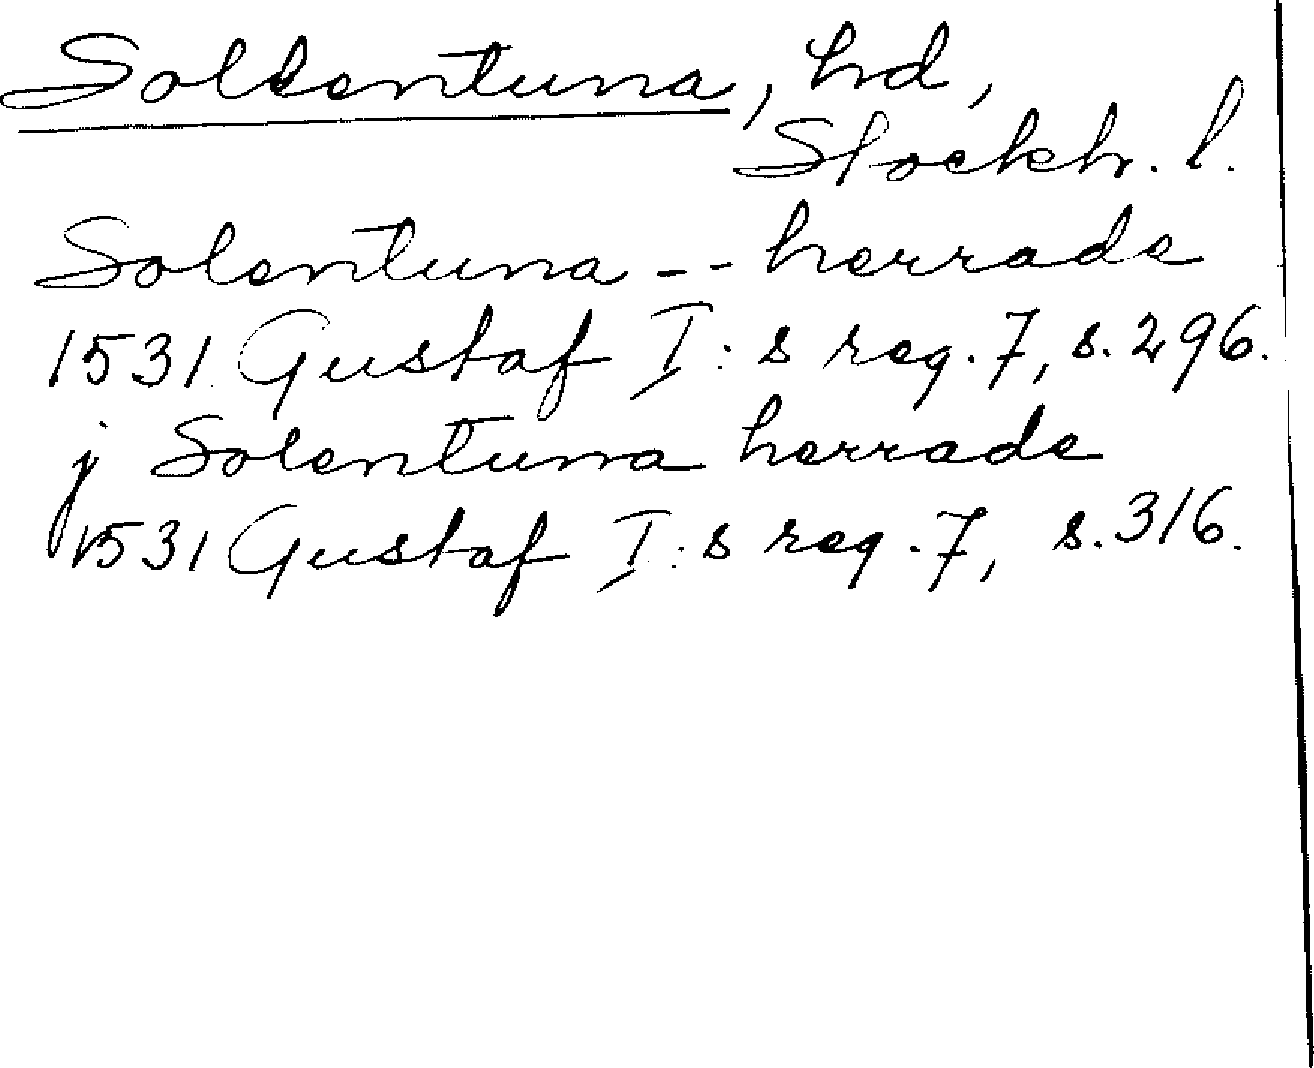 Sollentuna, hd,
Stockh. l.
Solentuna -- herrade
1531 Gustaf I:s reg. 7, s. 296.
j Solentuna herrade
1531 Gustaf I:s reg. 7, s. 316.